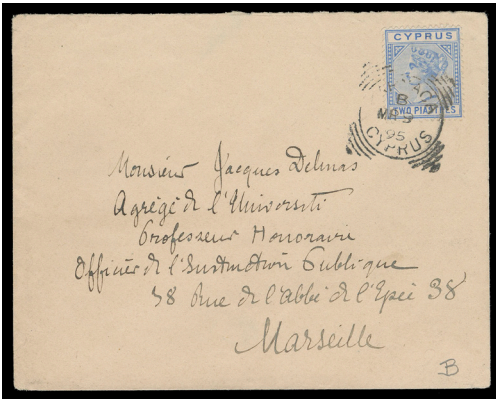 CYPRUS
TWO PIASTRES
B
MR 9
95
CYPRUS
Monsieur Jacques Delmas
Agrégé de l'Université
Professeur Honoraire
Officier de l'Instruction Publique
38 Rue de l'Abbé de l'Epée 38
Marseille
B